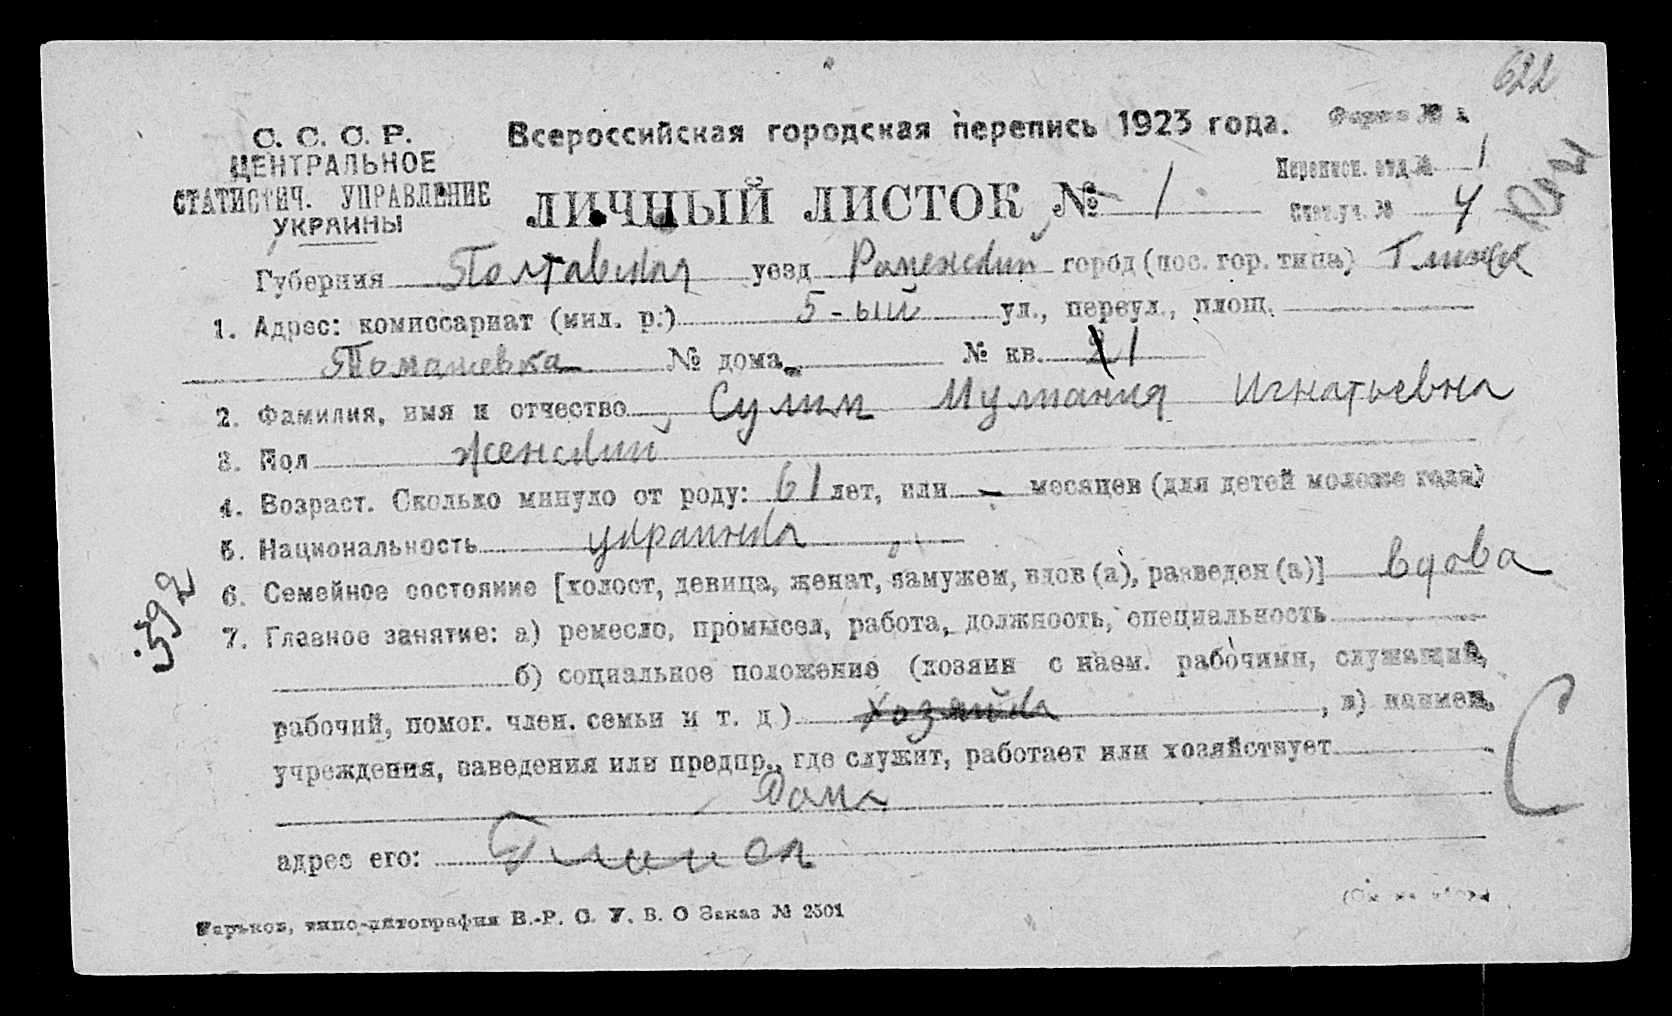 622
С. С. С. Р.
ЦЕНТРАЛЬНОЕ
СТАТИСТИЧ. УПРАВЛЕНИЕ
УКРАИНЫ
Всероссийская городская перепись 1923 года.
Форма № 1
ЛИЧНЫЙ ЛИСТОК № 1
Переписн. отд. № 1
Стат. уч. № 4
Губерния Полтавская уезд Роменский город (пос. гор. типа) Глинск
1. Адрес: комиссариат (мил. р.) 5-ый ул., переул., площ.
Томашевка № дома № кв. 1
2. Фамилия, имя и отчество Сулим Иулиания Игнатьевна
3. Пол женский
4. Возраст. Сколько минуло от роду: 61 лет, или — месяцев (для детей моложе года)
5. Национальность украинка
6. Семейное состояние [холост, девица, женат, замужем, вдов (а), разведен (а)] вдова
7. Главное занятие: а) ремесло, промысел, работа, должность, специальность
б) социальное положение (хозяин с наем. рабочими, служащий,
рабочий, помог. член. семьи и т. д) хозяйка, в) наимен.
учреждения, заведения или предпр., где служит, работает или хозяйствует
Дома
адрес его: Глинск
Харьков, типо-литография В.-Р. С. У. В. О Заказ № 2501
592
С